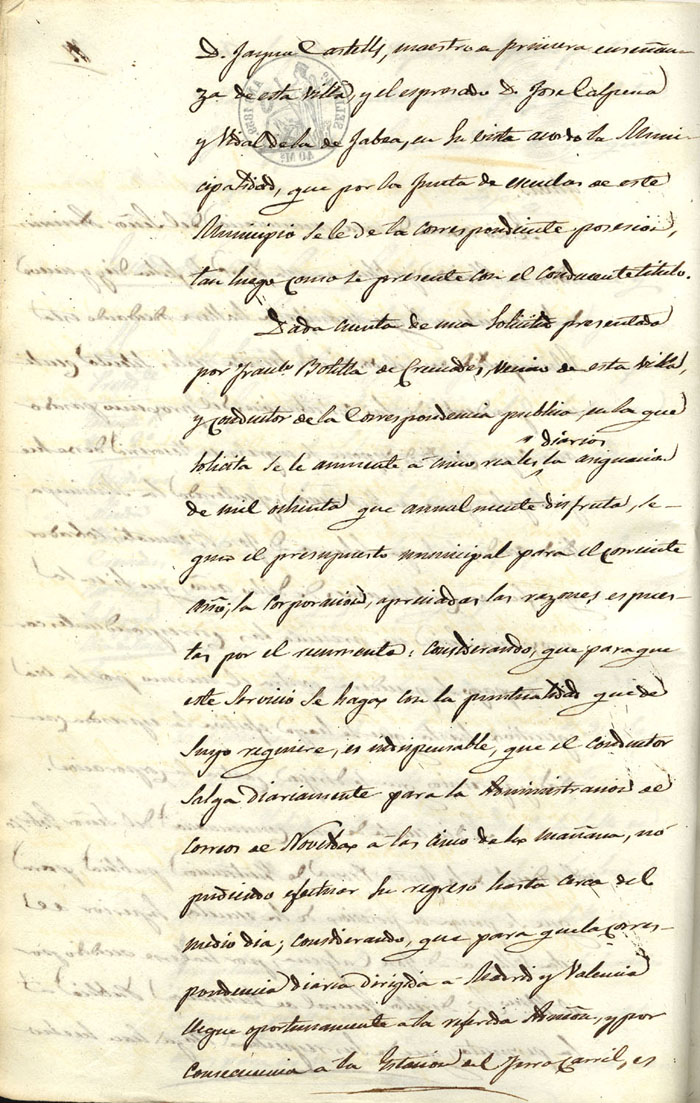 D. Jayme Castells, maestro de primera enseñan-
za de esta villa, y el espresado D. Jose Calpena
y Vidal de la de Jabea, en su vista acordo la Muni-
cipalidad, que por la Junta de escuelas de este
Municipio se le de la correspondiente posesion,
tan luego como se presente con el conducente titulo.
Dada cuenta de una solicitud presentada
por Franco. Botella de Cremades, vecino de esta villa,
y conductor de la correspondencia publica, en la que
solicita se le aumente á cinco reales diarios la asignacion
de mil ochenta que anualmente disfruta, se-
gun el presupuesto municipal para el corriente
año; la corporacion, apreciadas las razones espues-
tas por el recurrente: considerando, que para que
este servicio se haga con la puntualidad que de
suyo requiere, es indispensable, que el conductor
salga diariamente para la Administracion de
correos de Novelda á las cinco de la mañana, nó
pudiendo efectuar su regreso hasta cerca del
medio dia; considerando, que para que la corres-
pondencia diaria dirigida á Madrid y Valencia
llegue oportunamente á la referida Admon., y por
consecuencia á la Estacion del ferro carril, es